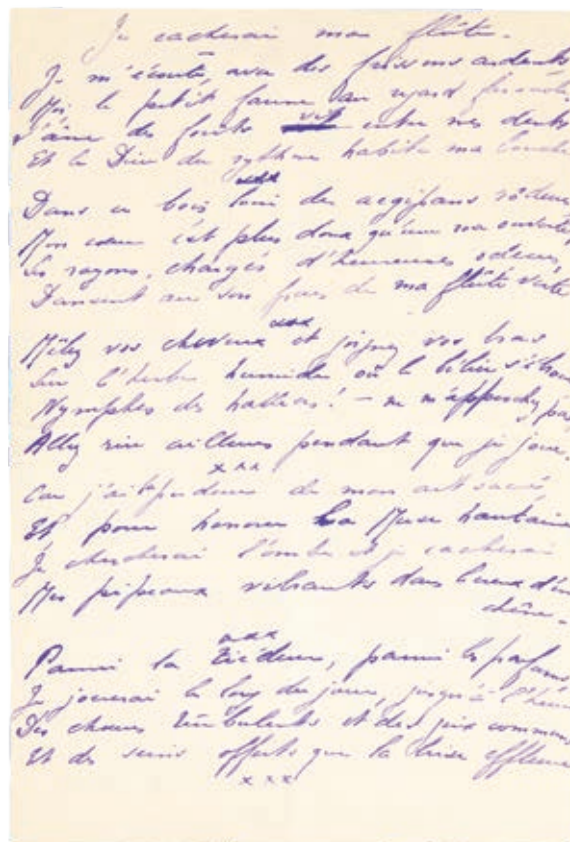 Je cacherai ma flûte.
Je m'écoute, avec des frissons ardents
Moi, le petit faune au regard farouche
L'âme des forêts vit entre mes dents
Et le Dieu du rythme habite ma bouche
xxx
Dans ce bois, loin des aegipans rôdeurs
Mon cœur est plus doux qu'une rose ouverte
Les rayons, chargés d'heureuses odeurs,
Dansent au son frais de ma flûte verte
xxx
Mêlez vos cheveux et joignez vos bras
Sur l'herbe humide où le bélier s'ébrou
Nymphes des halliers! – ne m'approchez pas
Allez rire ailleurs pendant que je joue.
xxx
Car j'ai la pudeur de mon art sacré
Et pour honorer la Muse hautaine
Je chercherai l'ombre et je cacherai
Mes pipeaux vibrants dans le creux d'un
chêne.
xxx
Parmi la tiédeur, parmi les parfums
Je jouerai le long du jour, jusqu'à l'heure
Des chœurs turbulents et des jeux communs
Et des seins offerts que la brise effleure
xxx